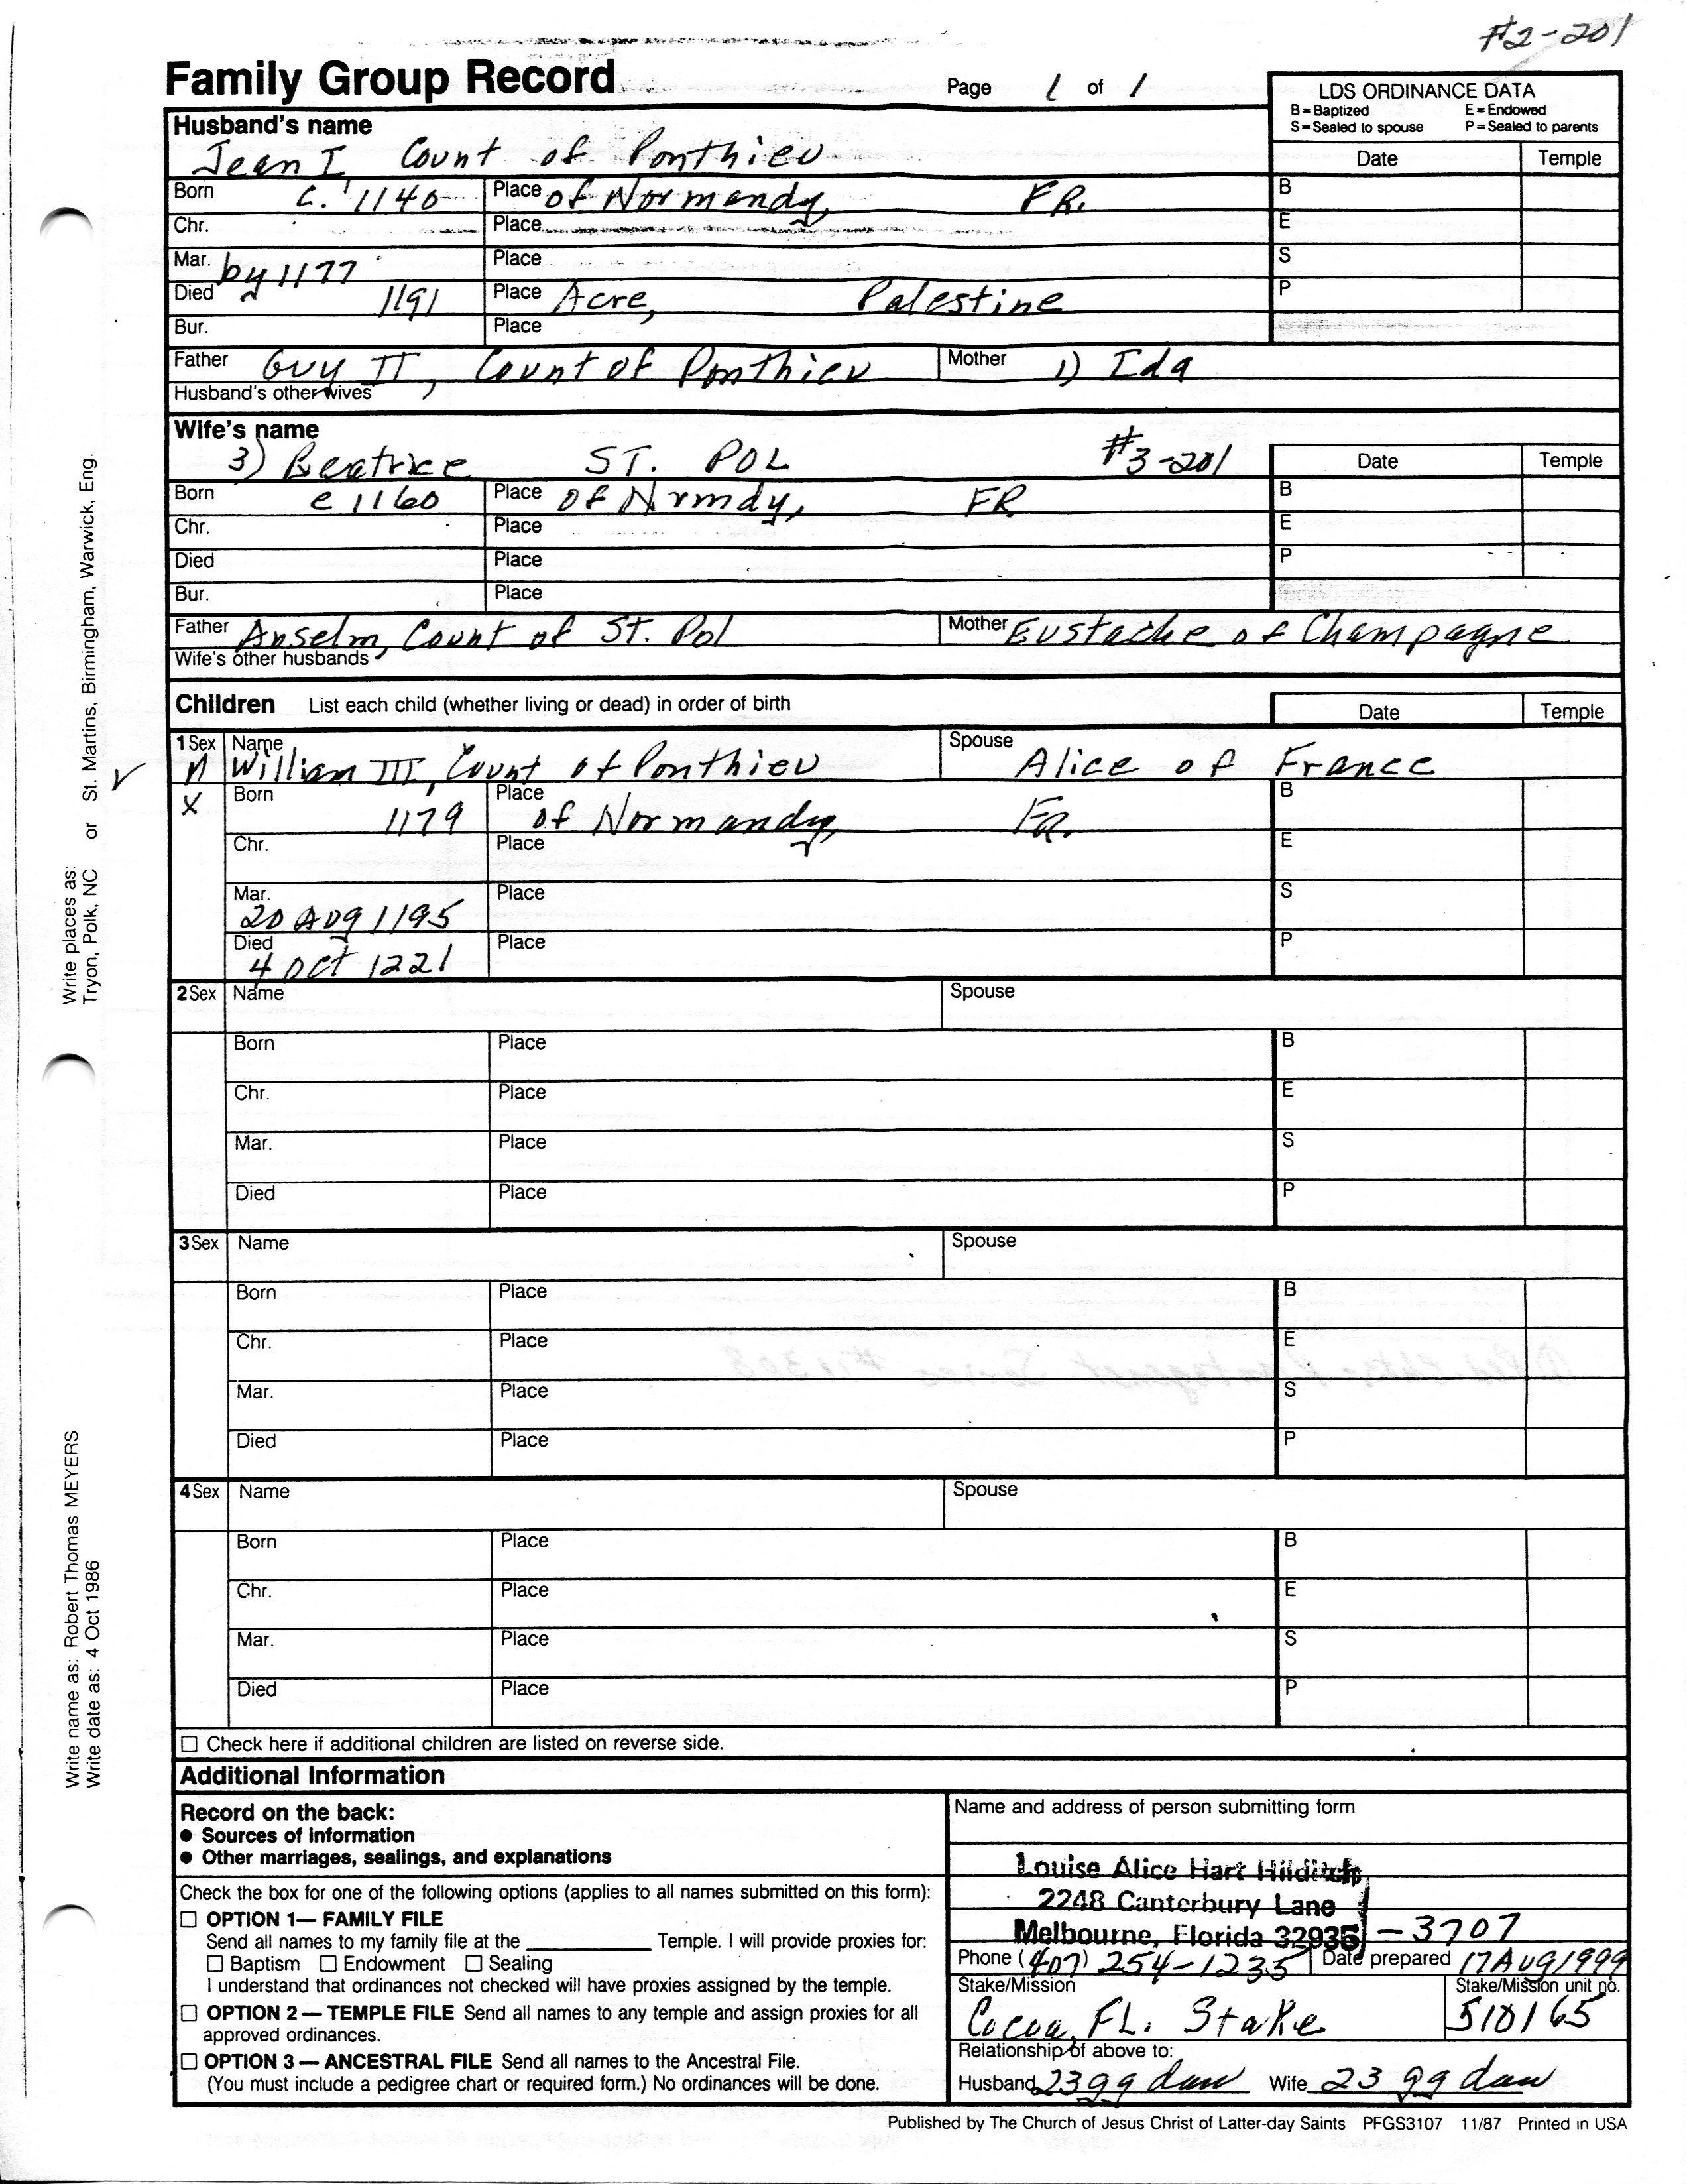 #2-201
Family Group Record
Page 1 of 1
LDS ORDINANCE DATA
B = Baptized E = Endowed
S = Sealed to spouse P = Sealed to parents
Date Temple
Husband's name
Jean I Count of Ponthieu
Born c. 1140 Place of Normandy, FR. B
Chr. Place E
Mar. by 1177 Place S
Died 1191 Place Acre, Palestine P
Bur. Place
Father Guy II, Count of Ponthieu Mother 1) Ida
Husband's other wives
Wife's name
3) Beatrice ST. POL #3-201
Date Temple
Born c 1160 Place of Nrmdy, FR B
Chr. Place E
Died Place P
Bur. Place
Father Anselm, Count of St. Pol Mother Eustache of Champagne
Wife's other husbands
Children List each child (whether living or dead) in order of birth
Date Temple
1 Sex Name Spouse
M William III, Count of Ponthieu Alice of France
X Born 1179 Place of Normandy, Fr. B
Chr. Place E
Mar. 20 Aug 1195 Place S
Died 4 Oct 1221 Place P
2 Sex Name Spouse
Born Place B
Chr. Place E
Mar. Place S
Died Place P
3 Sex Name Spouse
Born Place B
Chr. Place E
Mar. Place S
Died Place P
4 Sex Name Spouse
Born Place B
Chr. Place E
Mar. Place S
Died Place P
☐ Check here if additional children are listed on reverse side.
Additional Information
Record on the back:
● Sources of information
● Other marriages, sealings, and explanations
Check the box for one of the following options (applies to all names submitted on this form):
☐ OPTION 1— FAMILY FILE
Send all names to my family file at the ________ Temple. I will provide proxies for:
☐ Baptism ☐ Endowment ☐ Sealing
I understand that ordinances not checked will have proxies assigned by the temple.
☐ OPTION 2 — TEMPLE FILE Send all names to any temple and assign proxies for all
approved ordinances.
☐ OPTION 3 — ANCESTRAL FILE Send all names to the Ancestral File.
(You must include a pedigree chart or required form.) No ordinances will be done.
Name and address of person submitting form
Louise Alice Hart Hilditch
2248 Canterbury Lane
Melbourne, Florida 32935 -3707
Phone (407) 254-1235 Date prepared 17 Aug 1999
Stake/Mission Stake/Mission unit no.
Cocoa, FL. Stake 510165
Relationship of above to:
Husband 23 gg dau Wife 23 gg dau
Published by The Church of Jesus Christ of Latter-day Saints PFGS3107 11/87 Printed in USA
Write places as: Tryon, Polk, NC or St. Martins, Birmingham, Warwick, Eng.
Write name as: Robert Thomas MEYERS
Write date as: 4 Oct 1986